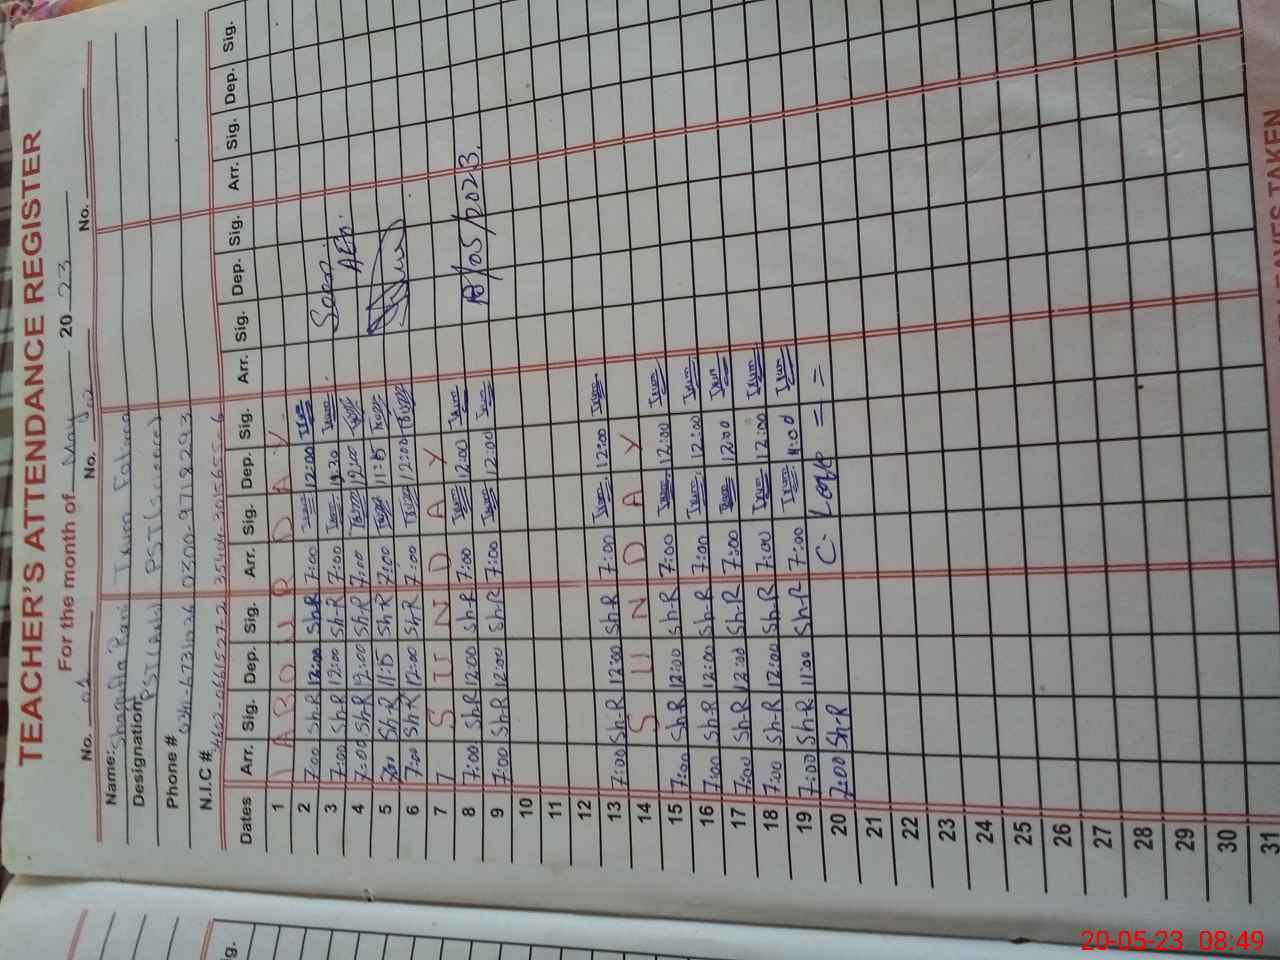 TEACHER'S ATTENDANCE REGISTER
For the month of May 20 23
No. 01 No. No.
Name: Shagufta Rani Irum Fatima
Designation PST (Arts) PST (Science)
Phone # 0300-9718293
N.I.C #
Dates Arr. Sig. Dep. Sig. Arr. Sig. Dep. Sig. Arr. Sig. Dep. Sig. Arr. Sig. Dep. Sig.
1 L A B O U R D A Y
2 7:00 Sh-R 12:00 Sh-R 7:00 Irum 12:00 Irum
3 7:00 Sh-R 12:00 Sh-R 7:00 Irum Irum
4 7:00 Sh-R 12:00 Sh-R 7:00 Irum 12:00 Irum
5 7:00 Sh-R 11:15 Sh-R 7:00 Irum 11:15 Irum
6 7:00 Sh-R 12:00 Sh-R 7:00 Irum 12:00 Irum
7 S U N D A Y
8 7:00 Sh-R 12:00 Sh-R 7:00 Irum 12:00 Irum
9 7:00 Sh-R 12:00 Sh-R 7:00 Irum 12:00 Irum
10
11
12
13 7:00 Sh-R 12:00 Sh-R 7:00 Irum 12:00 Irum
14 S U N D A Y
15 7:00 Sh-R 12:00 Sh-R 7:00 Irum 12:00 Irum
16 7:00 Sh-R 12:00 Sh-R 7:00 Irum 12:00 Irum
17 7:00 Sh-R 12:00 Sh-R 7:00 Irum 12:00 Irum
18 7:00 Sh-R 12:00 Sh-R 7:00 Irum 12:00 Irum
19 7:00 Sh-R 11:00 Sh-R 7:00 Irum 11:00 Irum
20 7:00 Sh-R C.
21
22
23
24
25
26
27
28
29
30
31
Seen
AEO.
/05/2023.
LEAVES TAKEN
Sig.
20-05-23 08:49